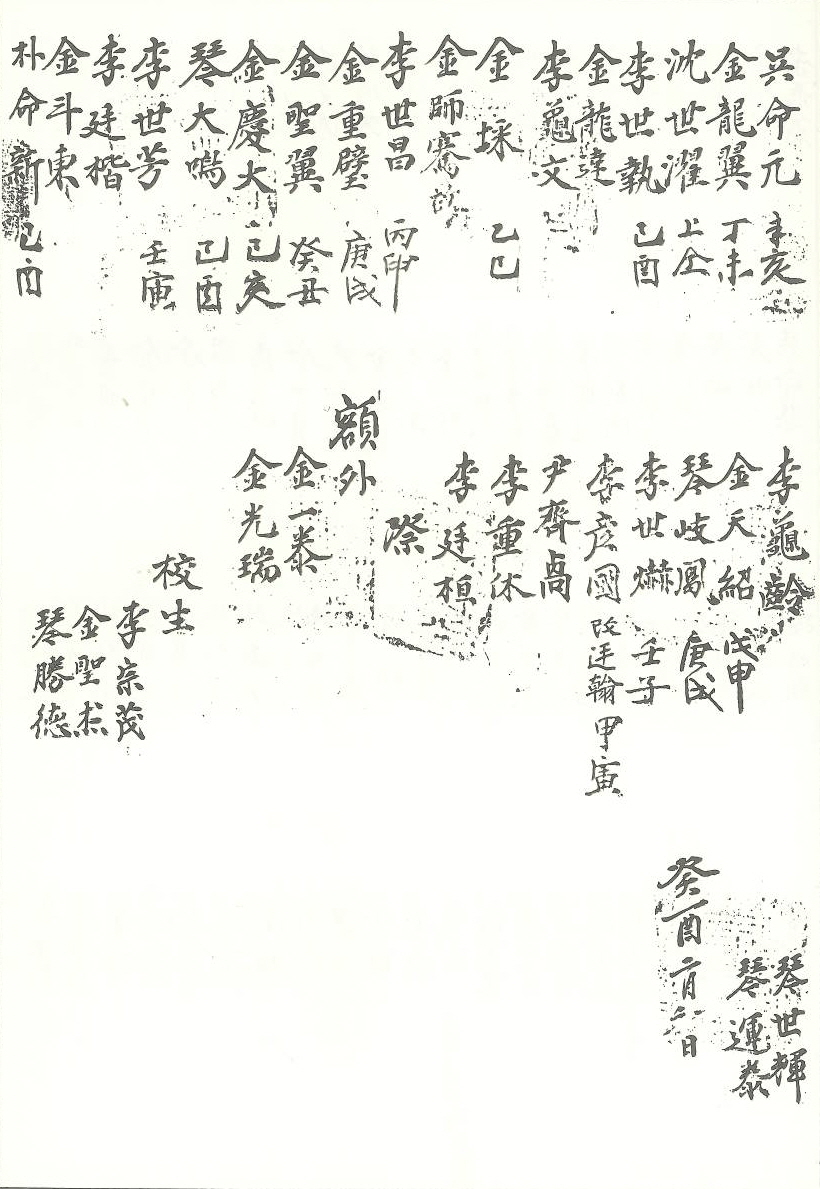 吳命元 辛亥
金龍翼 丁未
沈世濯 上仝
李世執 己酉
金龍達
李龜文
金埰 乙巳
金師騫 故
李世昌 丙申
金重璧 庚戌
金聖翼 癸丑
金慶大 己亥
琴大鳴 己酉
李世芳 壬寅
李廷楷
金斗東
朴命新 己酉
李龜齡
金天紹 戊申
琴岐鳳 庚戌
李世爀 壬子
李彦國 改廷翰 甲寅
尹齊卨
李重休
李廷桓
際
額外
金一泰
金光瑞
校生
李宗茂
金聖杰
琴勝德
琴世輝
琴運泰
癸酉二月 日